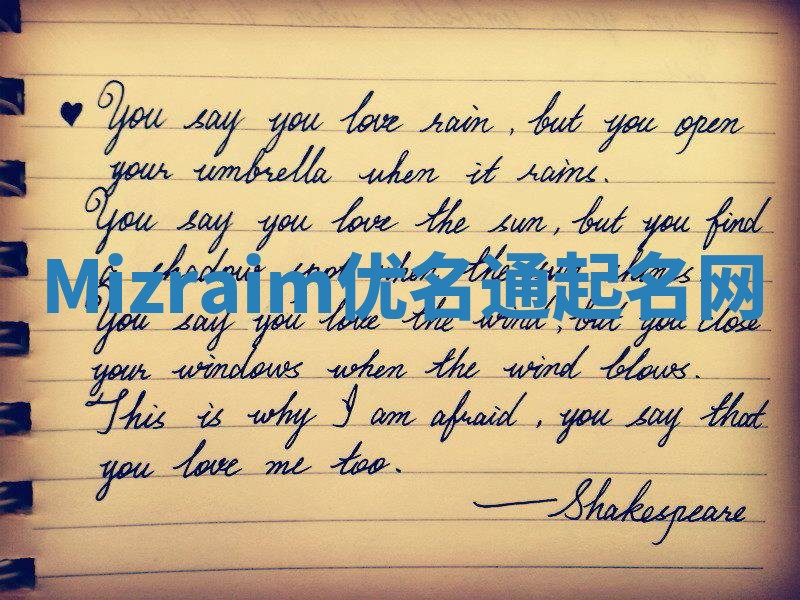 ♥ You say you love rain, but you open
your umbrella when it rains.
You say you love the sun, but you find
a shadow spot when the sun shines
Mizraim优名通起名网
You say you love the wind, but you close
your windows when the wind blows.
This is why I am afraid, you say that
you love me too.
—Shakespeare